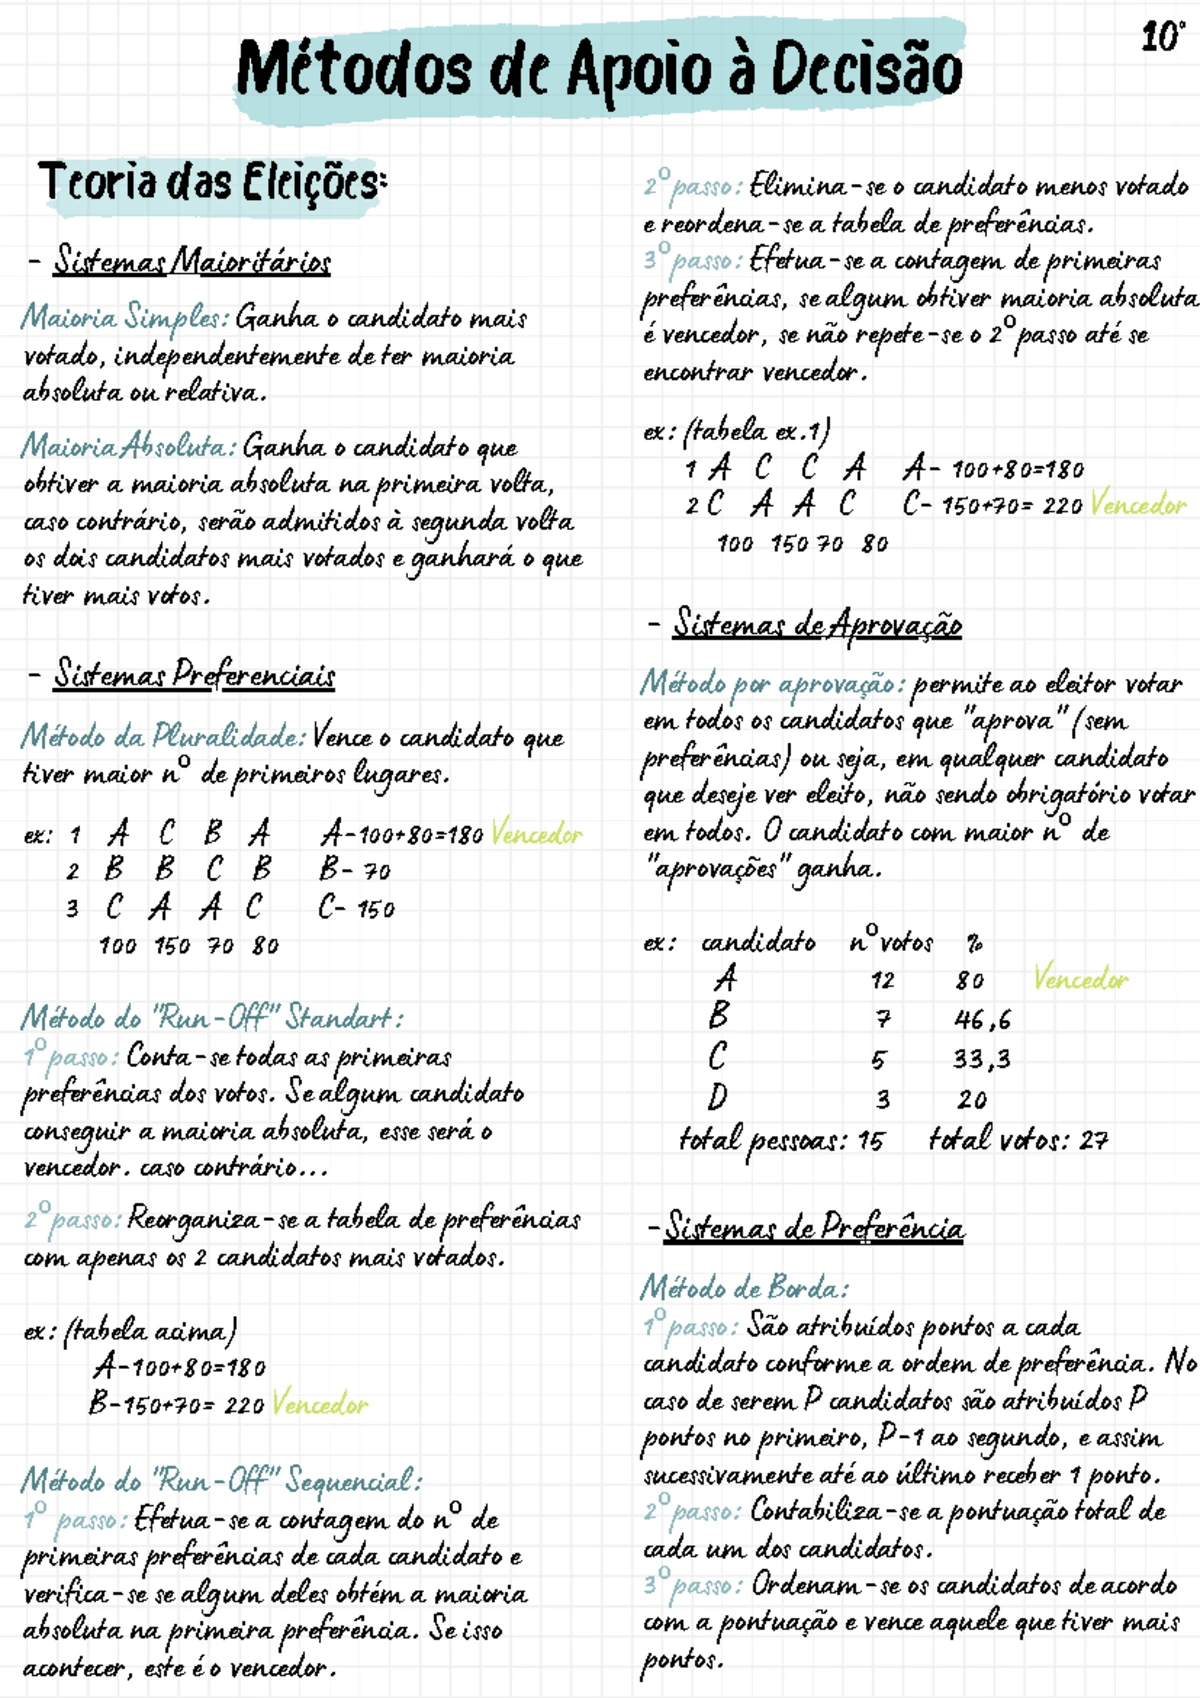 10°
Métodos de Apoio à Decisão
Teoria das Eleições:
- Sistemas Maioritários
Maioria Simples: Ganha o candidato mais
votado, independentemente de ter maioria
absoluta ou relativa.
Maioria Absoluta: Ganha o candidato que
obtiver a maioria absoluta na primeira volta,
caso contrário, serão admitidos à segunda volta
os dois candidatos mais votados e ganhará o que
tiver mais votos.
- Sistemas Preferenciais
Método da Pluralidade: Vence o candidato que
tiver maior nº de primeiros lugares.
ex: 1 A C B A A-100+80=180 Vencedor
2 B B C B B- 70
3 C A A C C- 150
100 150 70 80
Método do "Run-Off" Standart:
1º passo: Conta-se todas as primeiras
preferências dos votos. Se algum candidato
conseguir a maioria absoluta, esse será o
vencedor. caso contrário...
2º passo: Reorganiza-se a tabela de preferências
com apenas os 2 candidatos mais votados.
ex: (tabela acima)
A-100+80=180
B-150+70= 220 Vencedor
Método do "Run-Off" Sequencial:
1º passo: Efetua-se a contagem do nº de
primeiras preferências de cada candidato e
verifica-se se algum deles obtém a maioria
absoluta na primeira preferência. Se isso
acontecer, este é o vencedor.
2º passo: Elimina-se o candidato menos votado
e reordena-se a tabela de preferências.
3º passo: Efetua-se a contagem de primeiras
preferências, se algum obtiver maioria absoluta
é vencedor, se não repete-se o 2º passo até se
encontrar vencedor.
ex: (tabela ex.1)
1 A C C A A- 100+80=180
2 C A A C C- 150+70= 220 Vencedor
100 150 70 80
- Sistemas de Aprovação
Método por aprovação: permite ao eleitor votar
em todos os candidatos que "aprova" (sem
preferências) ou seja, em qualquer candidato
que deseje ver eleito, não sendo obrigatório votar
em todos. O candidato com maior nº de
"aprovações" ganha.
ex: candidato nº votos %
A 12 80 Vencedor
B 7 46,6
C 5 33,3
D 3 20
total pessoas: 15 total votos: 27
- Sistemas de Preferência
Método de Borda:
1º passo: São atribuídos pontos a cada
candidato conforme a ordem de preferência. No
caso de serem P candidatos são atribuídos P
pontos no primeiro, P-1 ao segundo, e assim
sucessivamente até ao último receber 1 ponto.
2º passo: Contabiliza-se a pontuação total de
cada um dos candidatos.
3º passo: Ordenam-se os candidatos de acordo
com a pontuação e vence aquele que tiver mais
pontos.